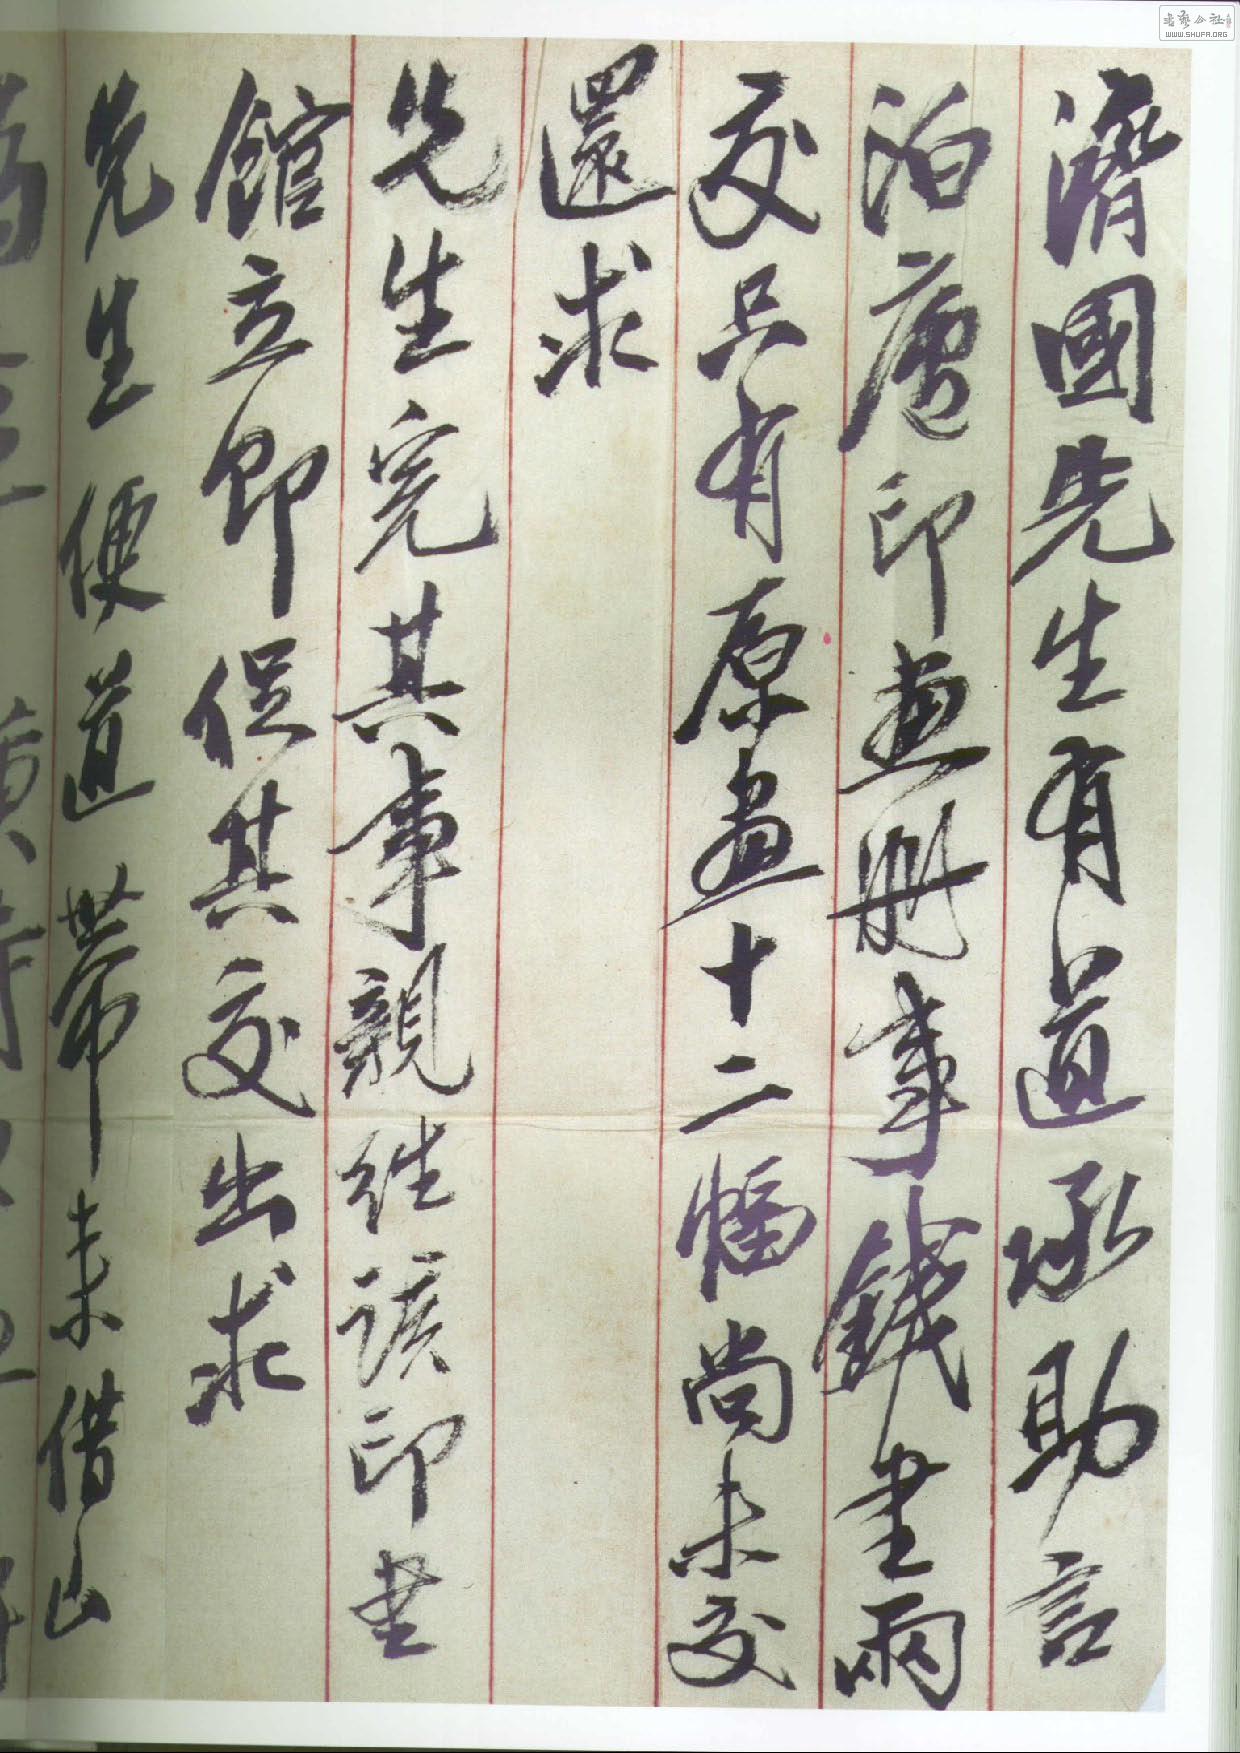 濟國先生有道承助言
泊廬印畫册事錢畫兩
交只有原畫十二幅尚未交
還求
先生完其事親往該印書
館立即促其交出求
先生便道帶來借山
WWW.SHUFA.ORG